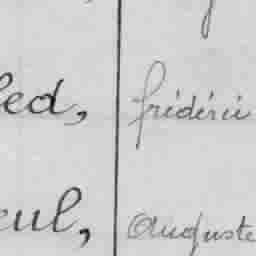 led, frédéric
eul, Auguste